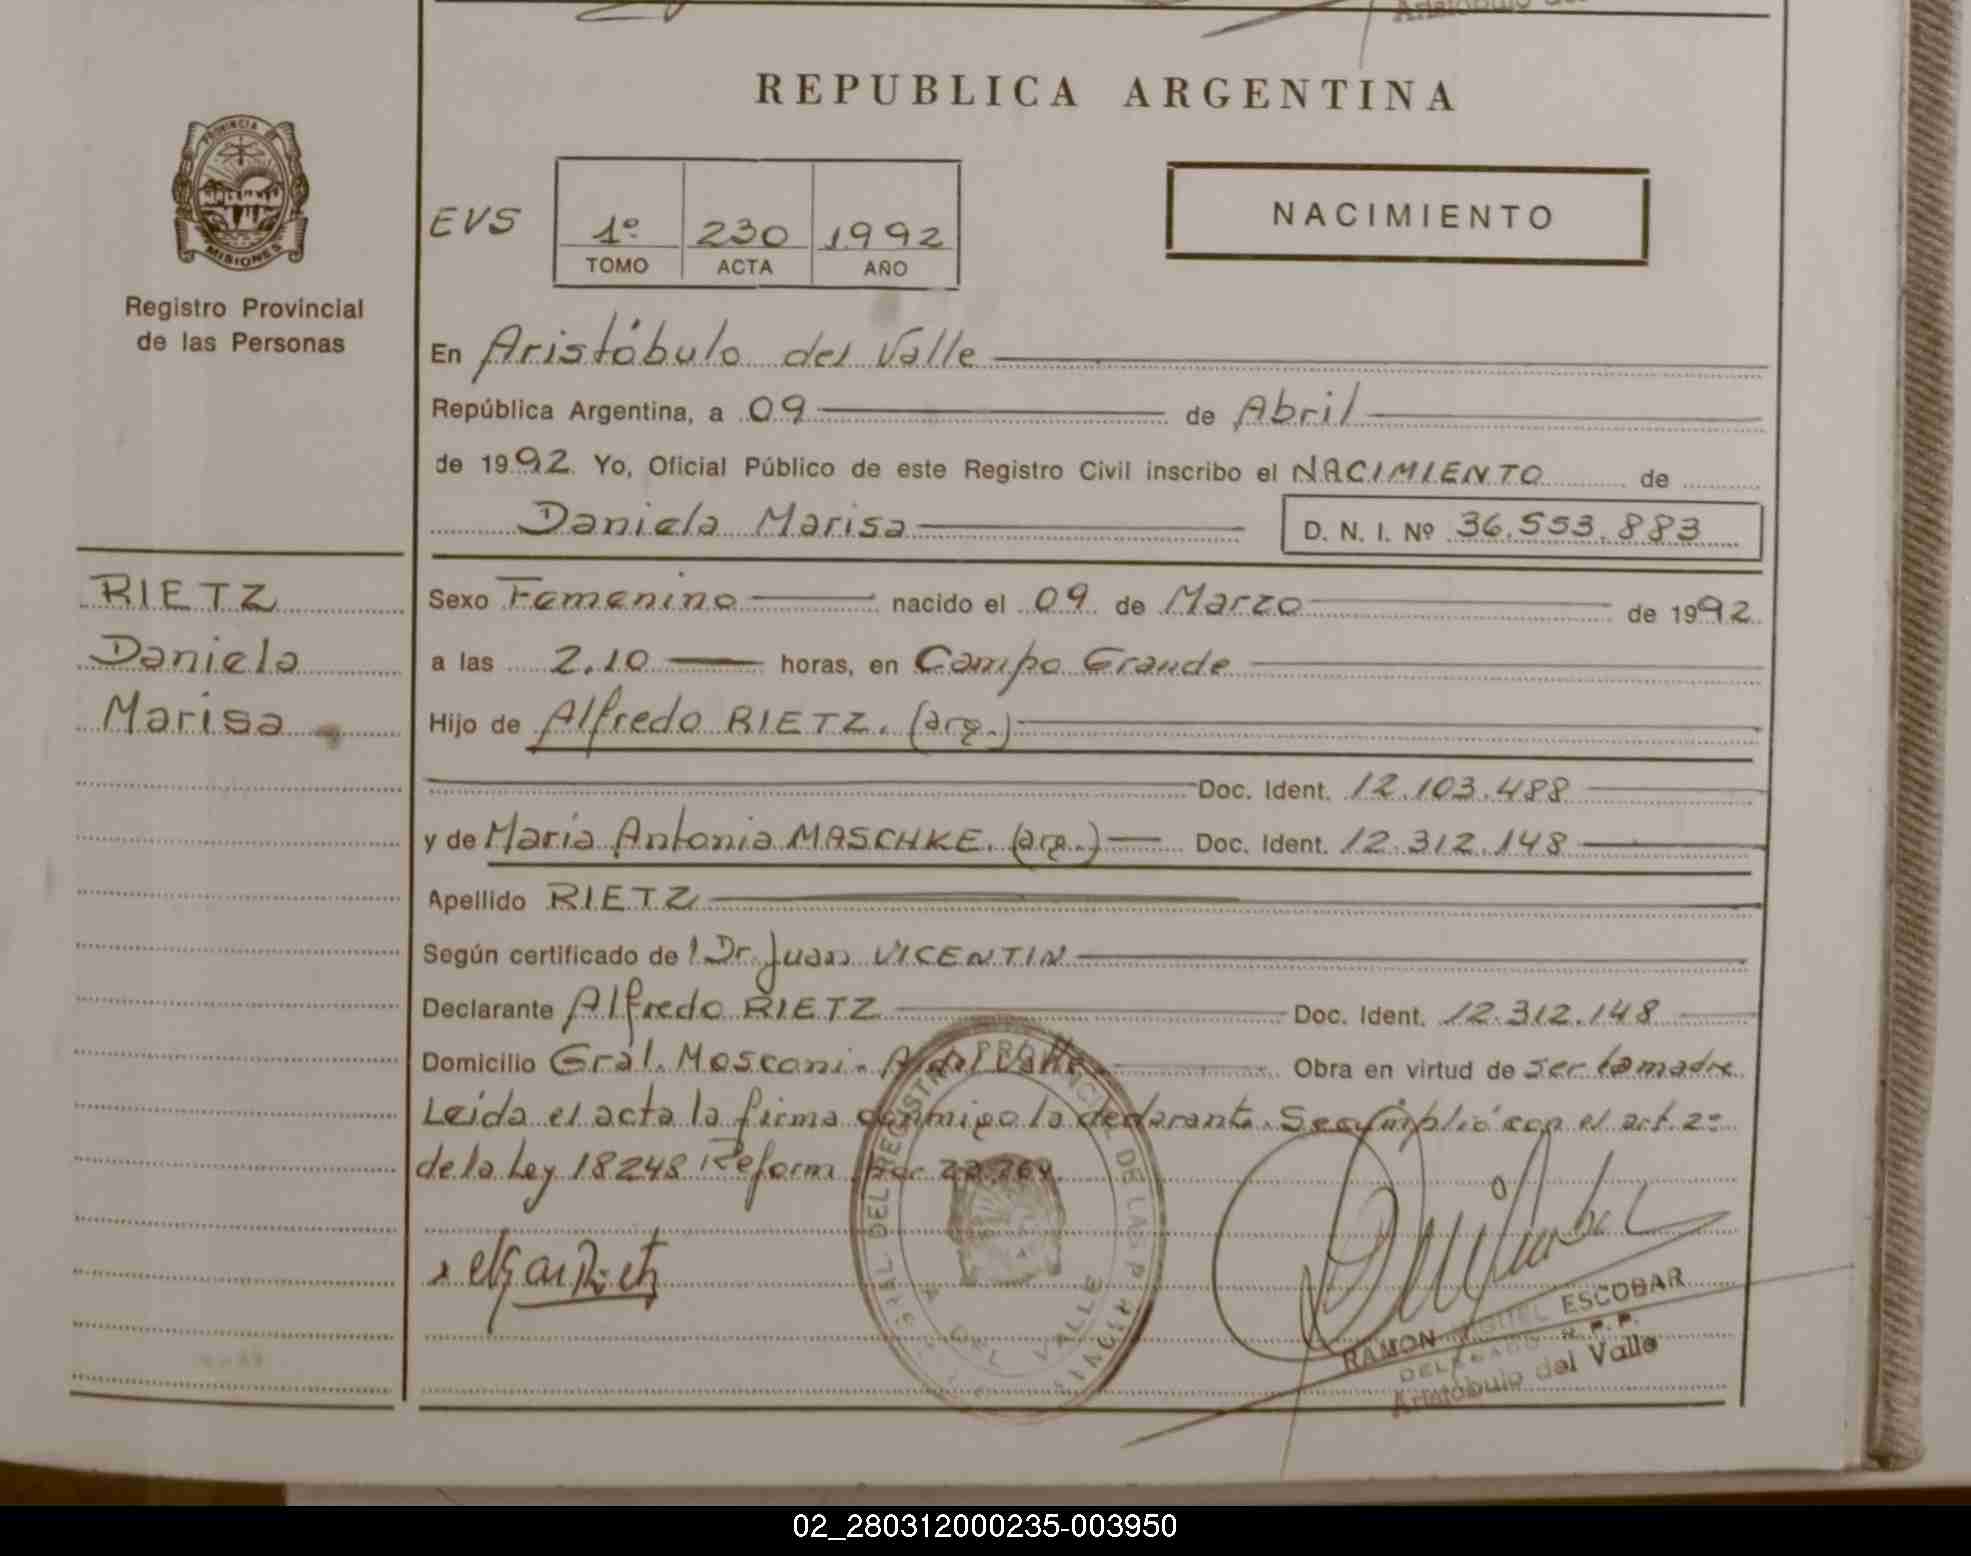 REPUBLICA ARGENTINA
PROVINCIA DE
MISIONES
Registro Provincial
de las Personas
EVS
1º 230 1992
TOMO ACTA AÑO
NACIMIENTO
En Aristóbulo del Valle
República Argentina, a 09 de Abril
de 1992. Yo, Oficial Público de este Registro Civil inscribo el NACIMIENTO de
Daniela Marisa D. N. I. Nº 36.553.883
RIETZ
Daniela
Marisa
Sexo Femenino nacido el 09 de Marzo de 1992
a las 2.10 horas, en Campo Grande
Hijo de Alfredo RIETZ. (arg.)
Doc. Ident. 12.103.488
y de Maria Antonia MASCHKE. (arg.) Doc. Ident. 12.312.148
Apellido RIETZ
Según certificado de Dr. Juan VICENTIN
Declarante Alfredo RIETZ Doc. Ident. 12.312.148
Domicilio Gral. Mosconi. A. del Valle. Obra en virtud de ser la madre
Leida el acta la firma conmigo la declarante. Se cumplió con el art. 2º
de la Ley 18248 Reform. por
RAMON MIGUEL ESCOBAR
DELEGADO R.P.P.
Aristóbulo del Valle
02_280312000235-003950